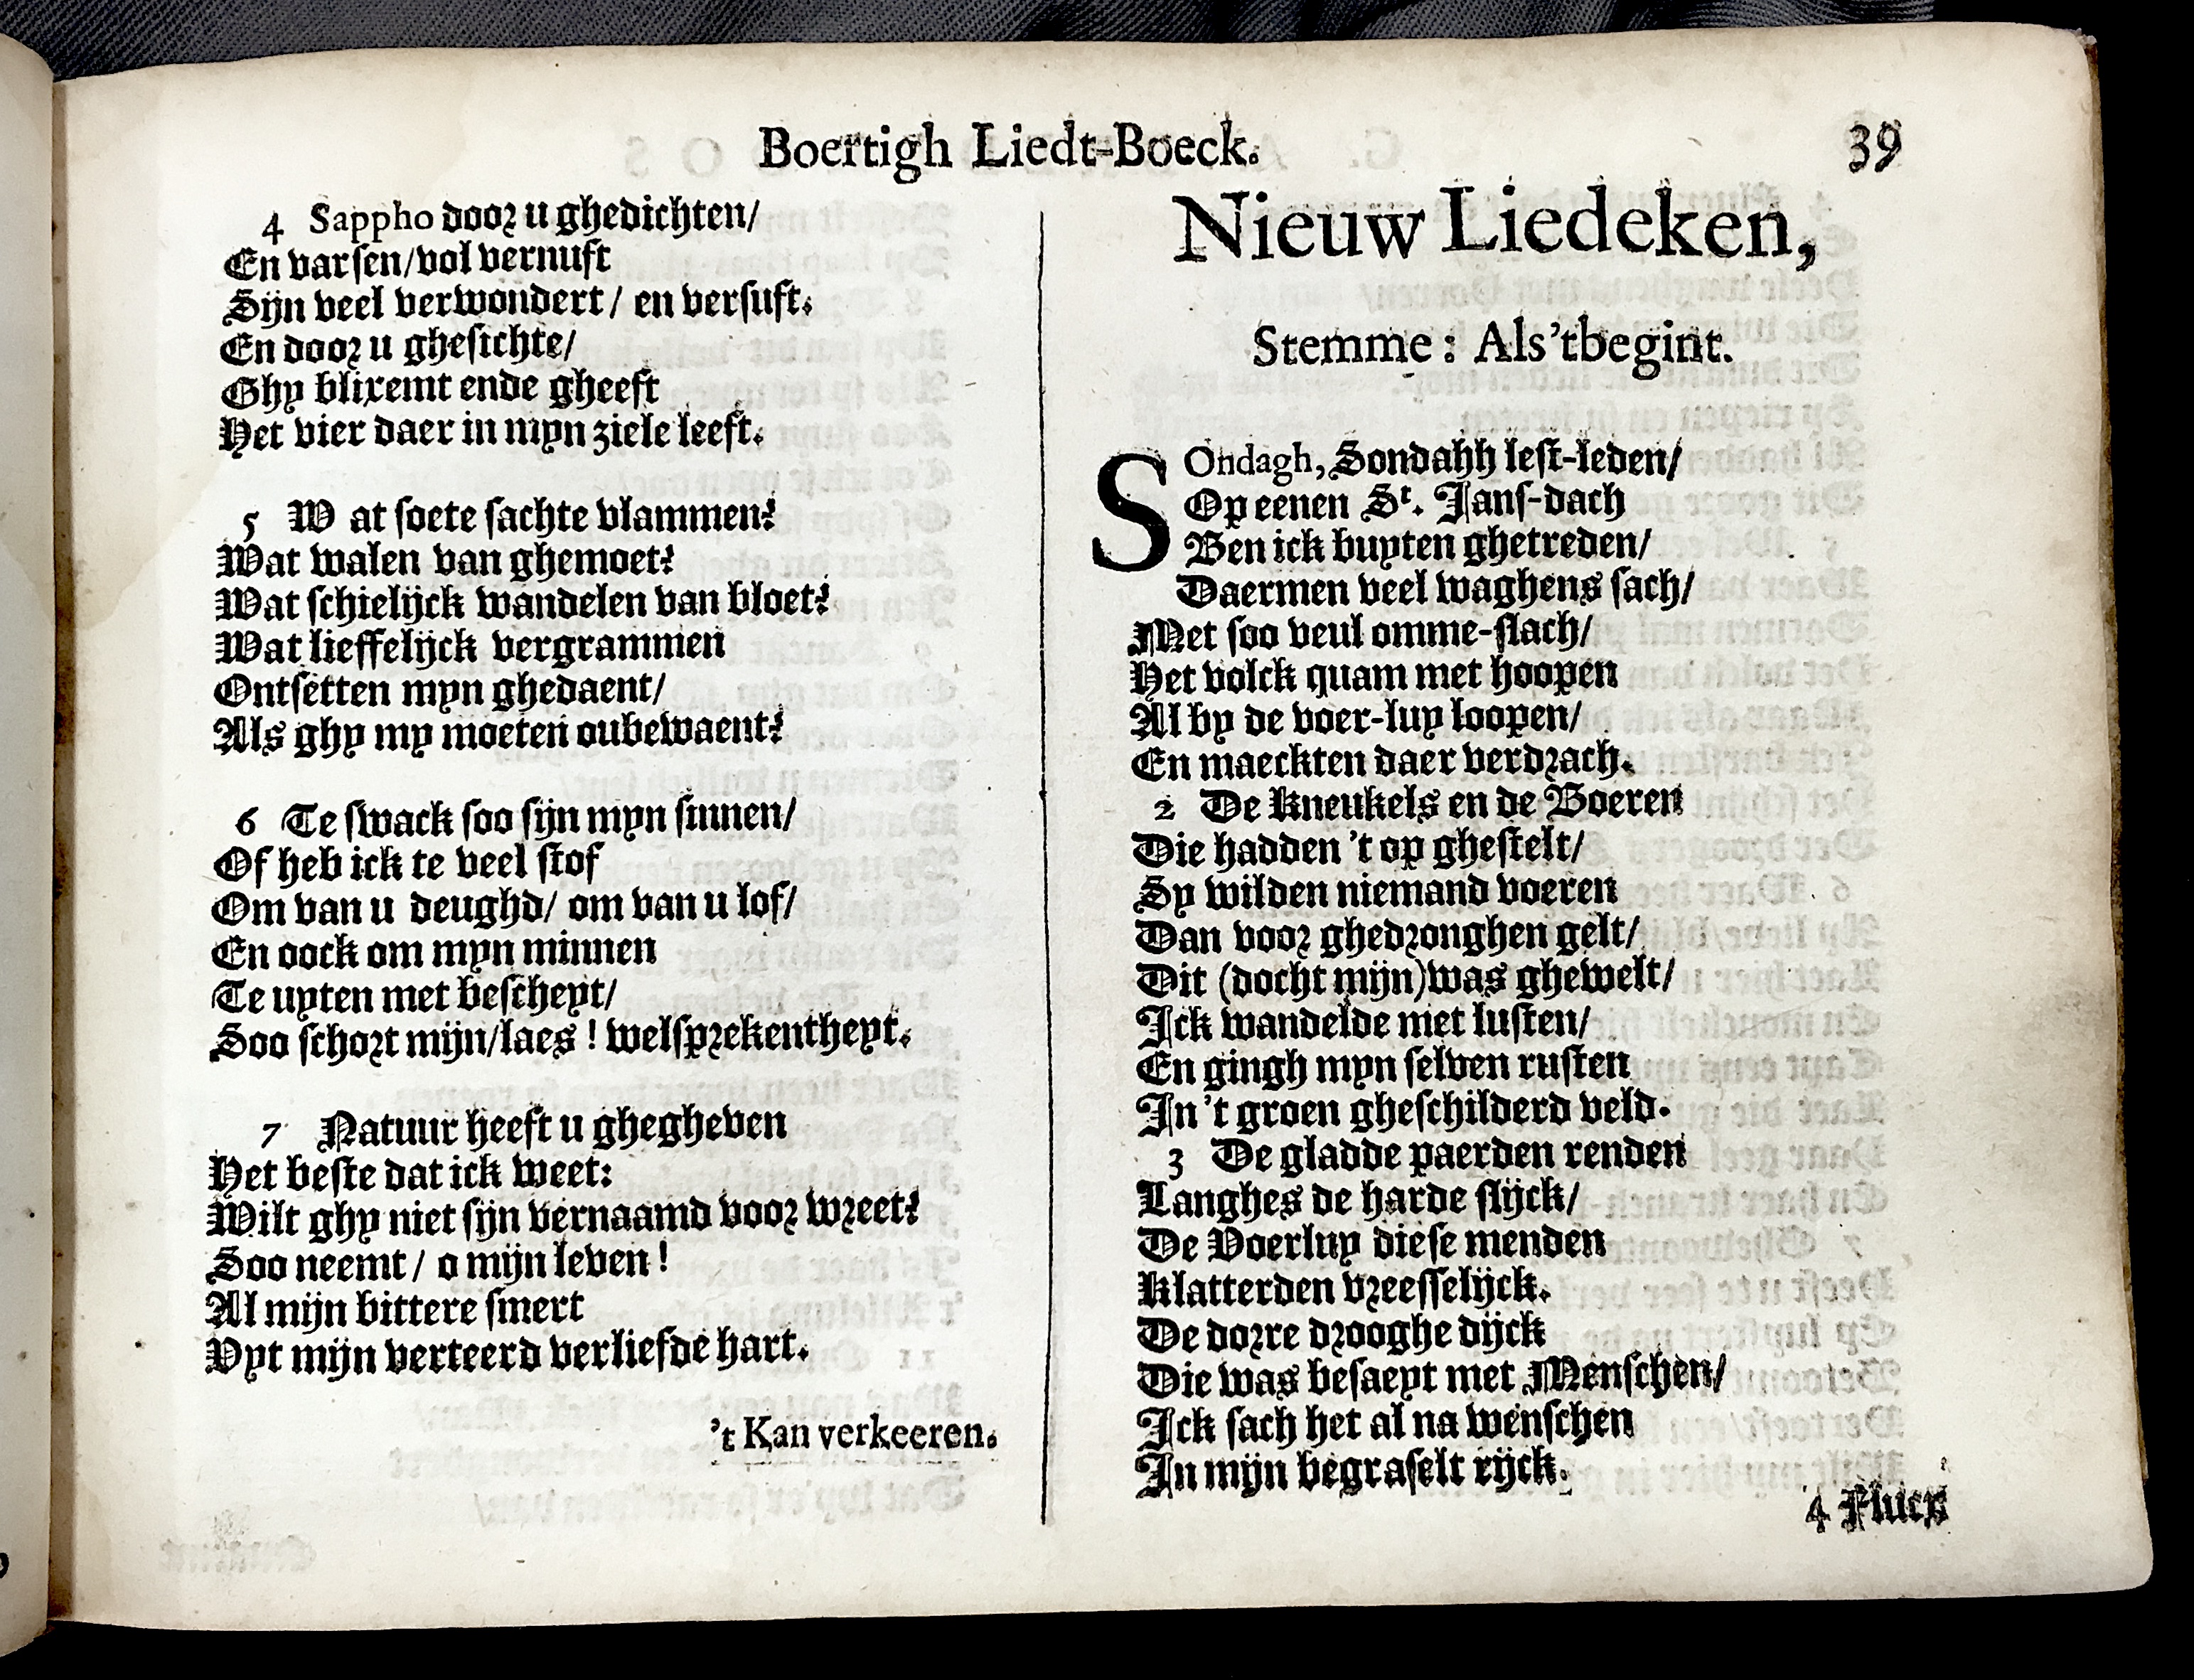 Boertigh Liedt-Boeck. 39
4 Sappho door u ghedichten/
En varsen/vol vernuft
Sijn veel verwondert/ en versuft.
En door u ghesichte/
Ghy blixemt ende gheeft
Het vier daer in myn ziele leeft.
5 W at soete sachte vlammen?
Wat walen van ghemoet?
Wat schielijck wandelen van bloet?
Wat lieffelijck vergrammen
Ontsetten myn ghedaent/
Als ghy my moeten oubewaent?
6 Te swack soo sijn myn sinnen/
Of heb ick te veel stof
Om van u deughd/ om van u lof/
En oock om myn minnen
Te uyten met bescheyt/
Soo schort mijn/laes! welsprekentheyt.
7 Natuur heeft u ghegheven
Het beste dat ick weet:
Wilt ghy niet sijn vernaamd voor wreet?
Soo neemt/ o mijn leven!
Al mijn bittere smert
Vyt mijn verteerd verliefde hart.
't Kan verkeeren.
Nieuw Liedeken,
Stemme: Als 'tbegint.
SOndagh, Sondahh lest-leden/
Op eenen St. Jans-dach
Ben ick buyten ghetreden/
Daermen veel waghens sach/
Met soo veul omme-slach/
Het volck quam met hoopen
Al by de voer-luy loopen/
En maeckten daer verdrach.
2 De Kneukels en de Boeren
Die hadden 't op ghestelt/
Sy wilden niemand voeren
Dan voor ghedronghen gelt/
Dit (docht mijn) was ghewelt/
Ick wandelde met lusten/
En gingh myn selven rusten
In 't groen gheschilderd veld.
3 De gladde paerden renden
Langhes de harde slijck/
De Voerluy diese menden
Klatterden vreesselijck.
De dorre drooghe dijck
Die was besaeyt met Menschen/
Ick sach het al na wenschen
In mijn begraselt rijck.
4 Flucx